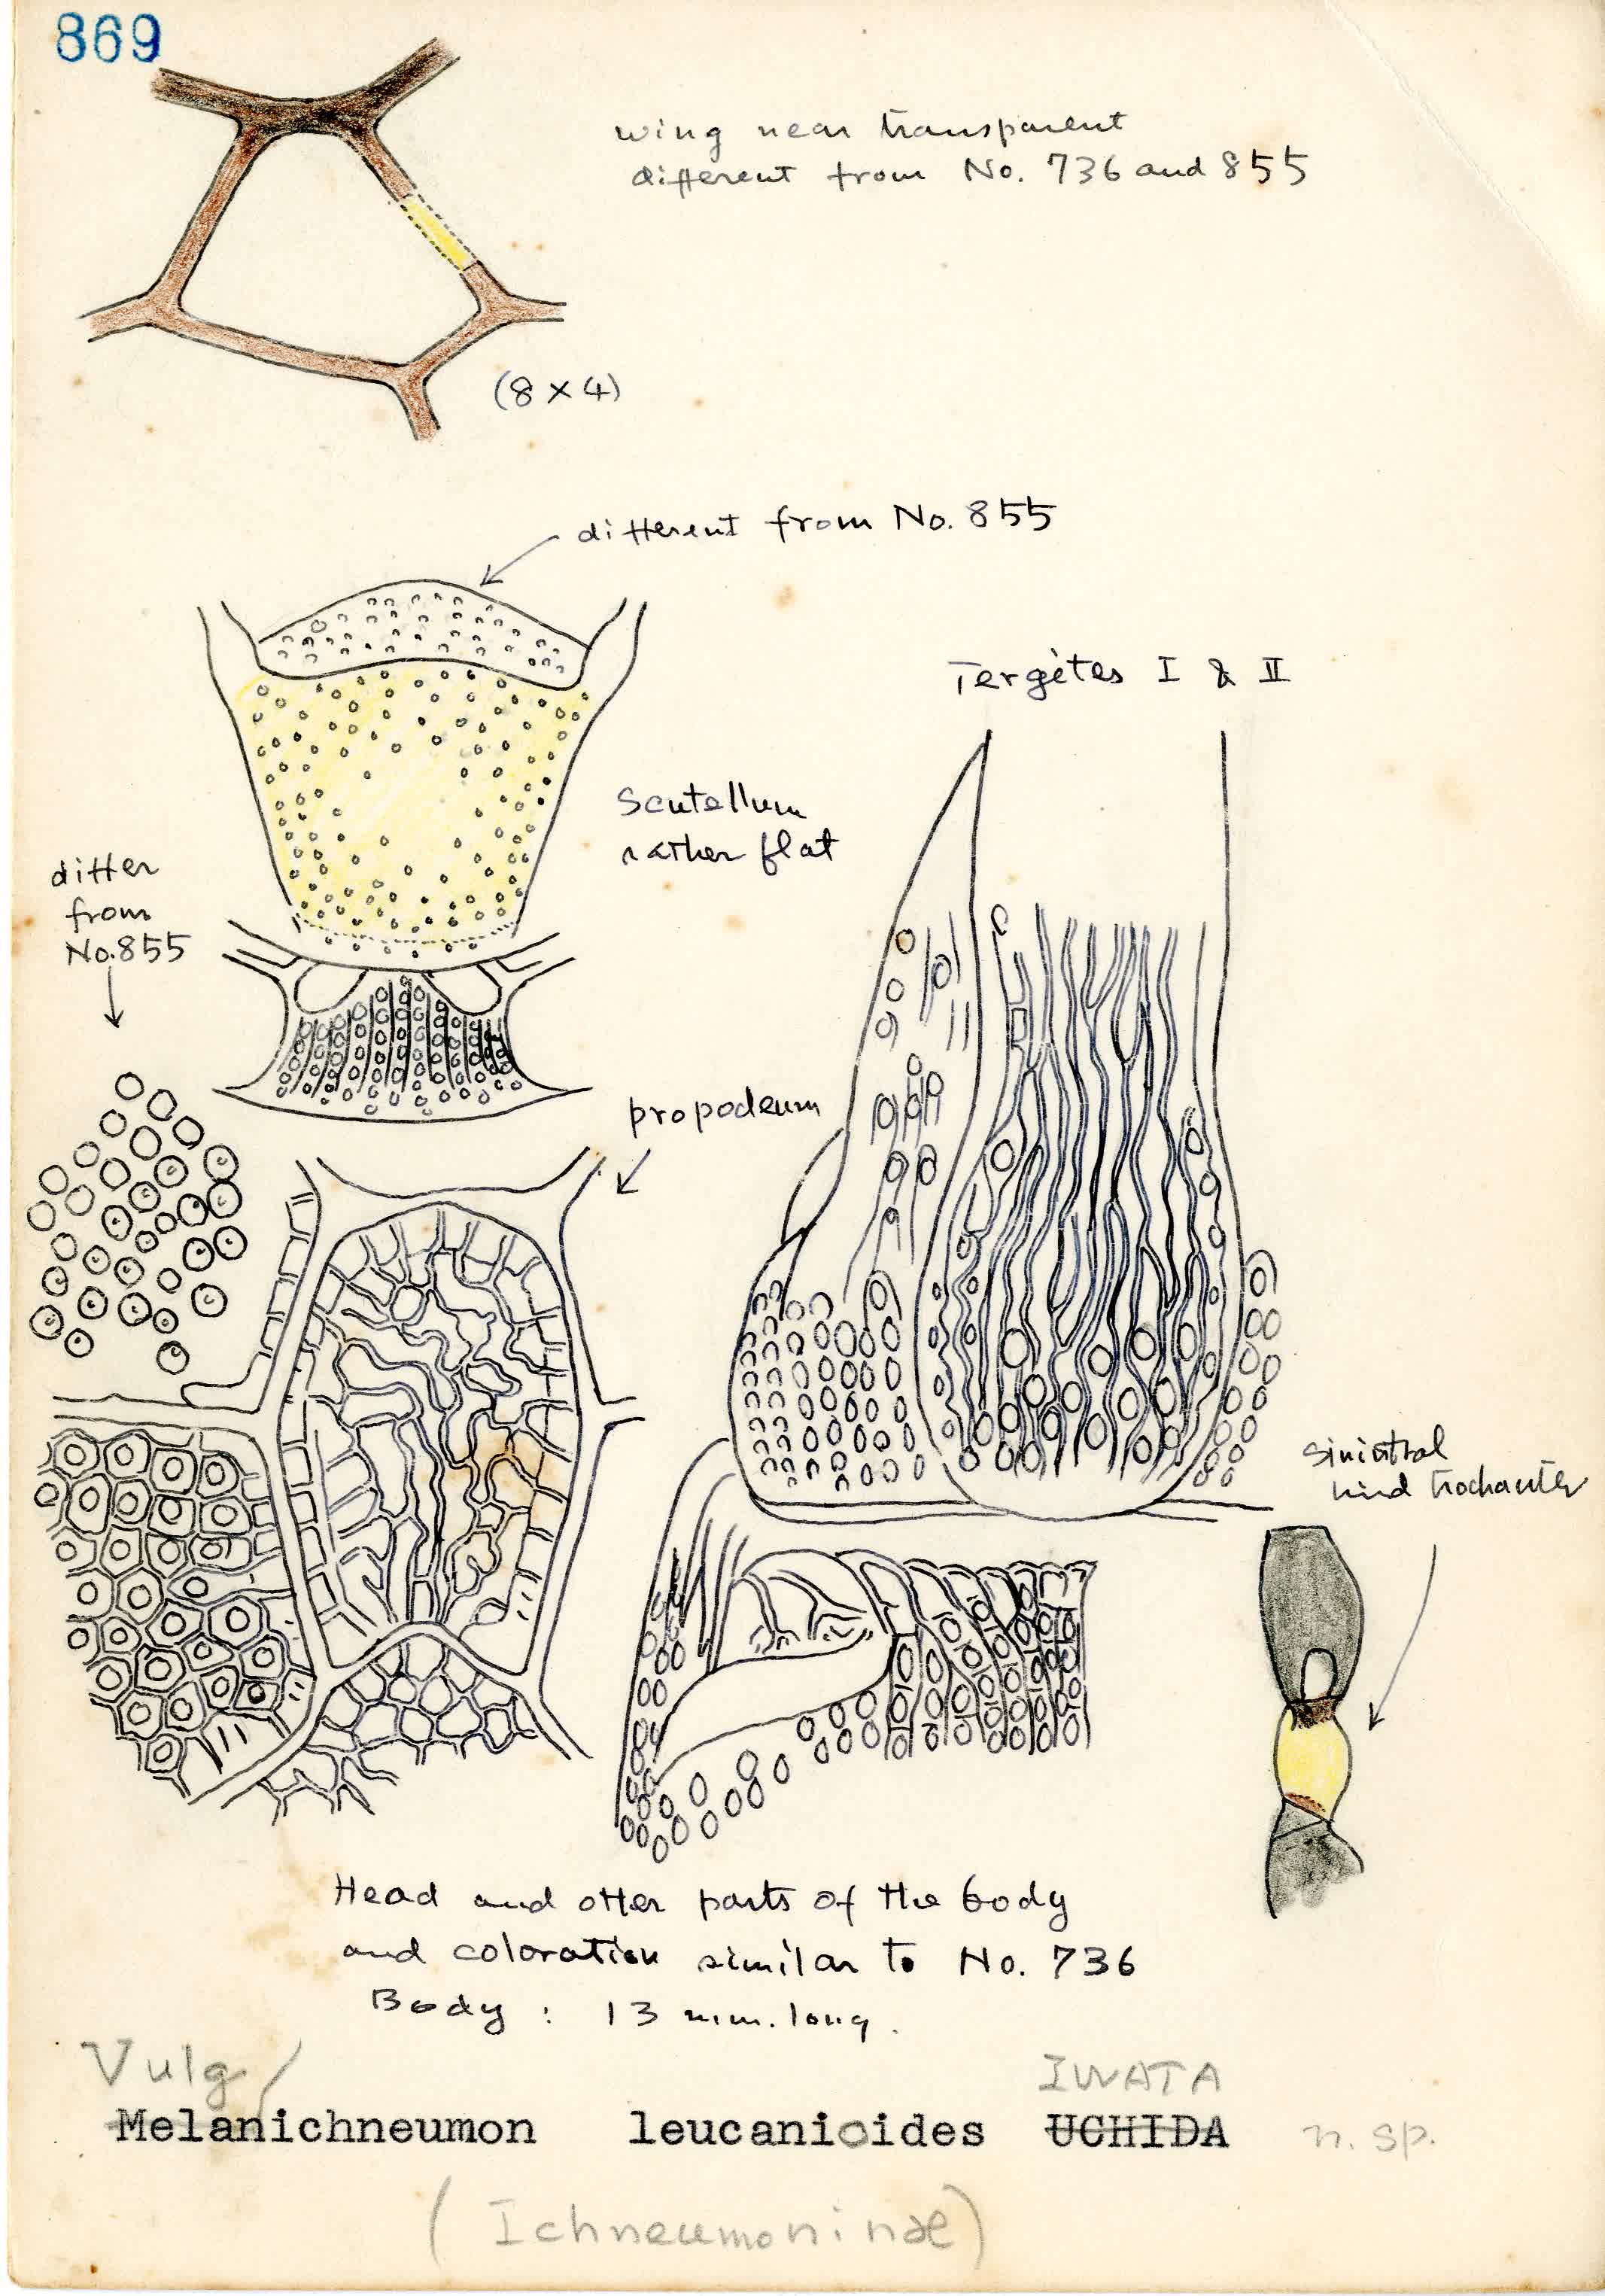 869
wing near transparent
different from No. 736 and 855
(8 × 4)
different from No. 855
Tergites I & II
Scutellum
rather flat
differ
from
No. 855
propodeum
sinistral
hind trochanter
Head and other parts of the body
and coloration similar to No. 736
Body : 13 mm. long.
Vulg/ IWATA
Melanichneumon leucanioides UCHIDA n. sp.
(Ichneumoninae)